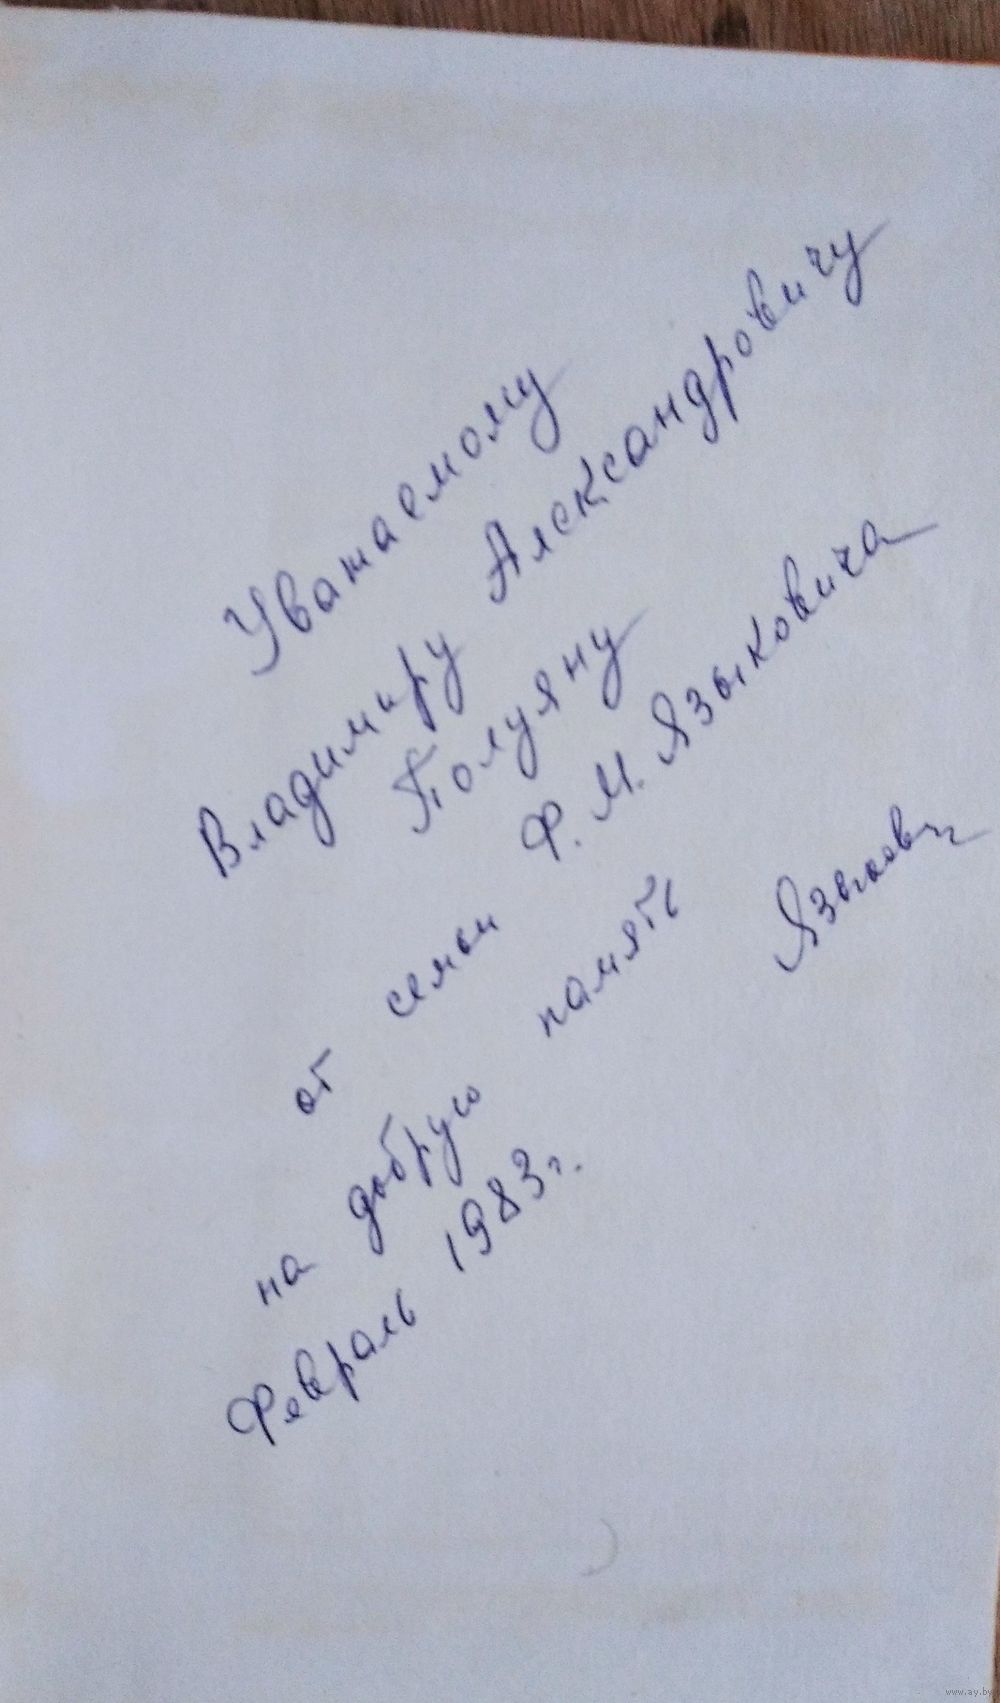 Уважаемому
Владимиру Александровичу
Полуяну
от семьи Ф. М. Языковича
на добрую память
Февраль 1983 г.
Языкович
www.ay.by